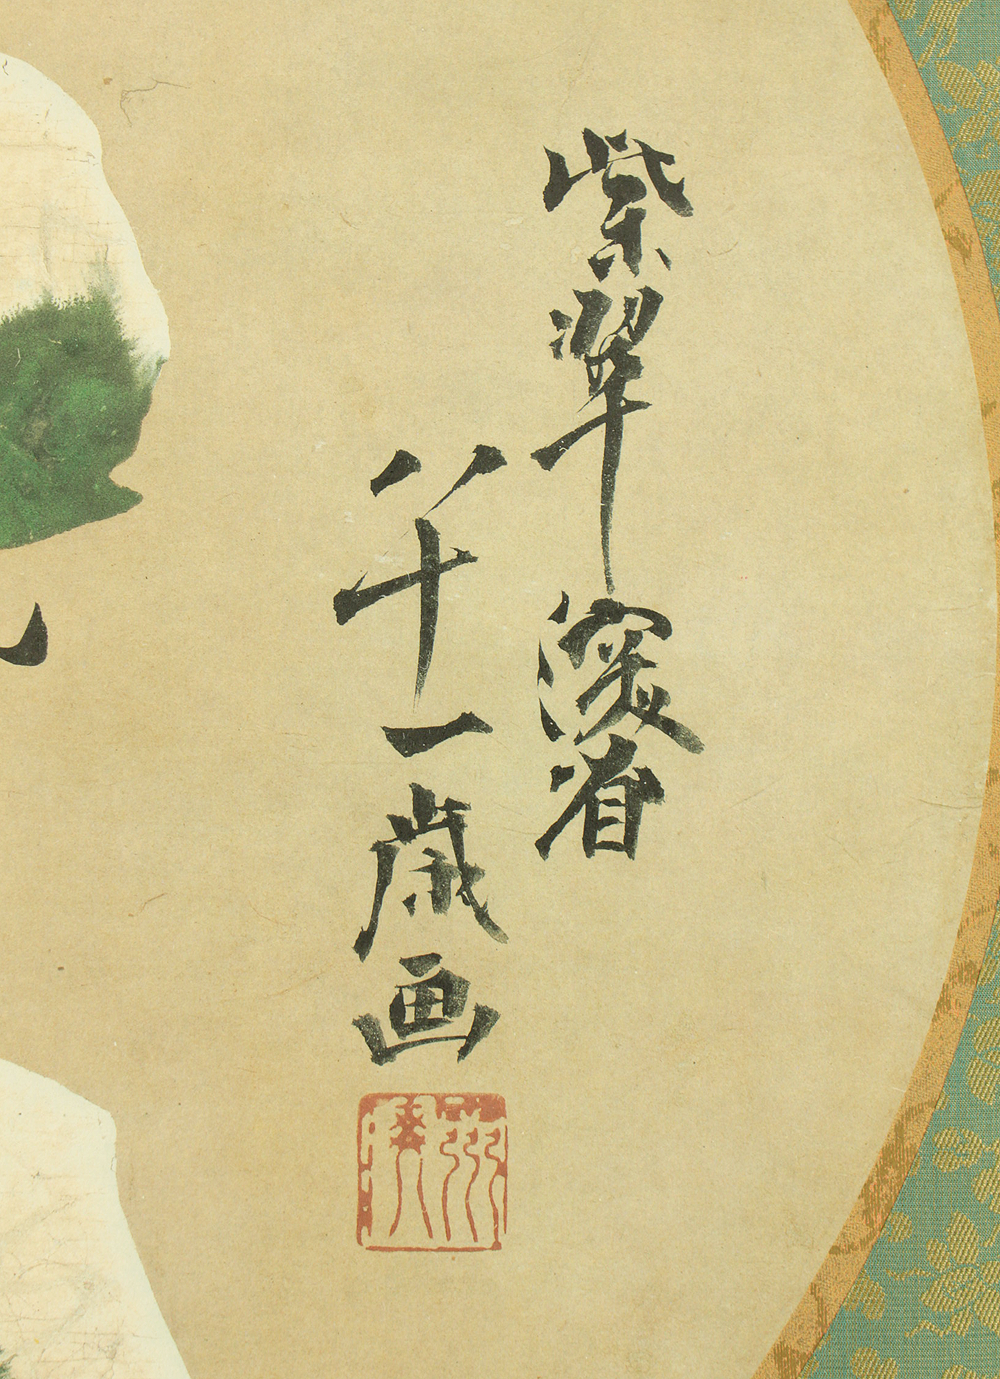 紫翠深省
八十一歳画